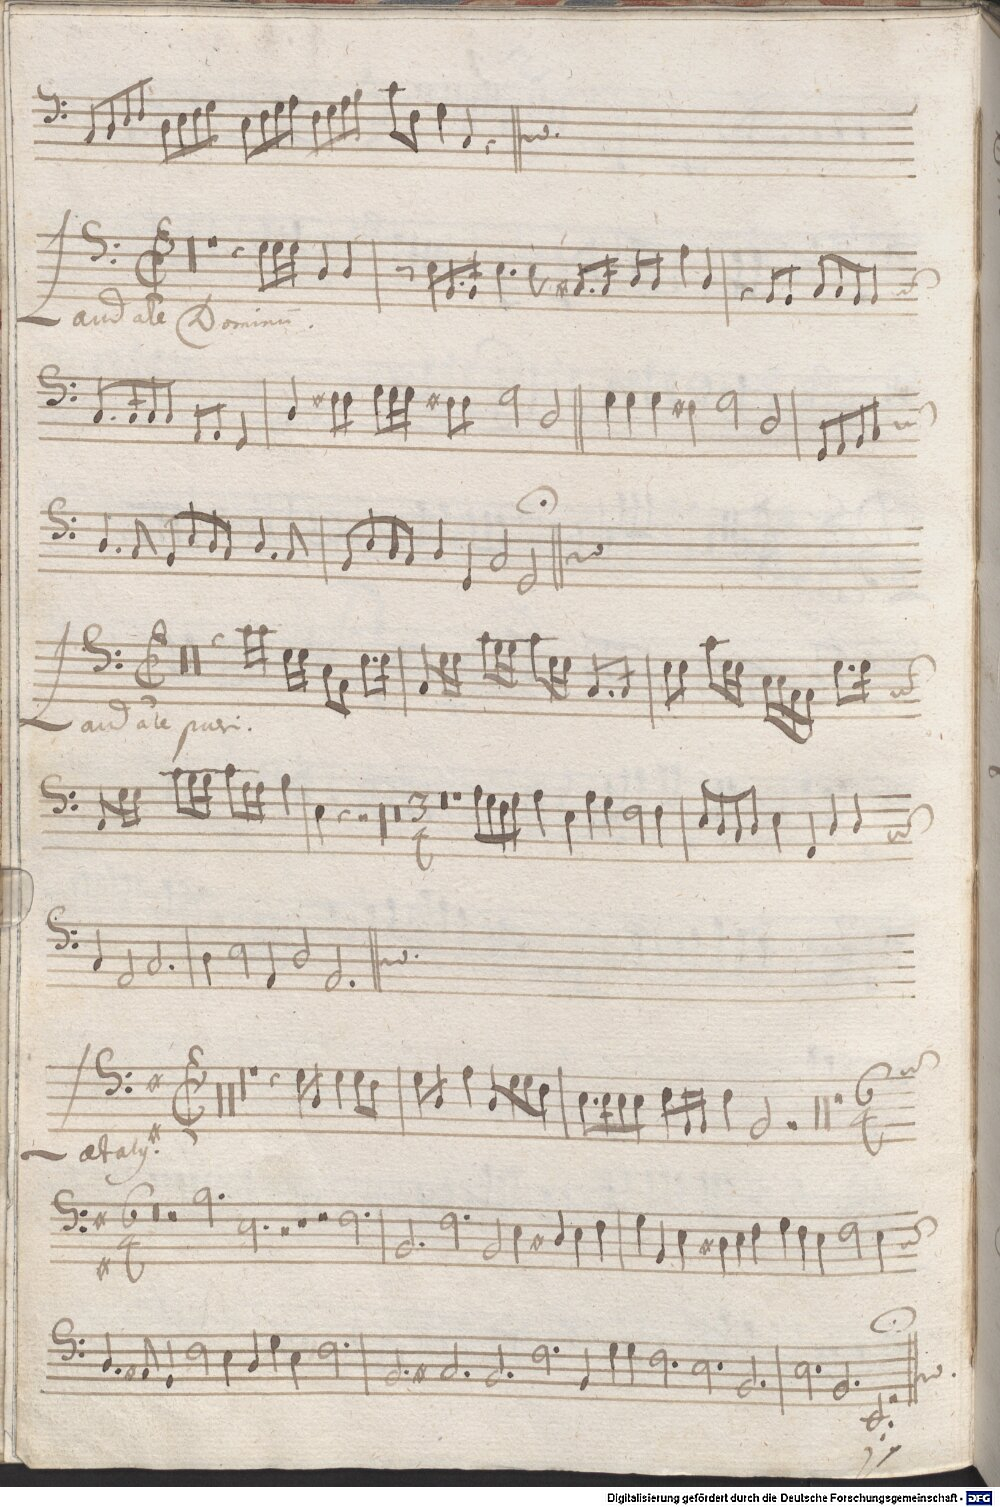 Laudate Dominū.
Laudate pueri.
Lætaty.
Digitalisierung gefördert durch die Deutsche Forschungsgemeinschaft - DFG